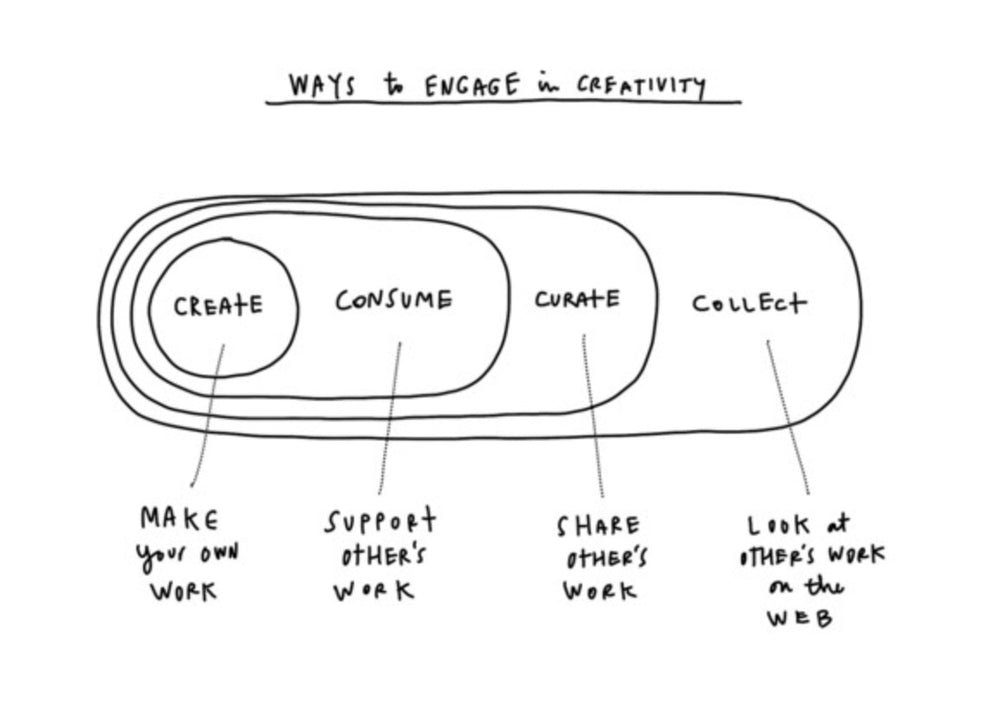 WAYS to ENGAGE in CREATIVITY
CREATE
CONSUME
CURATE
COLLECT
MAKE
your OWN
WORK
SUPPORT
OTHER'S
WORK
SHARE
OTHER'S
WORK
LOOK at
OTHER'S WORK
on the
WEB